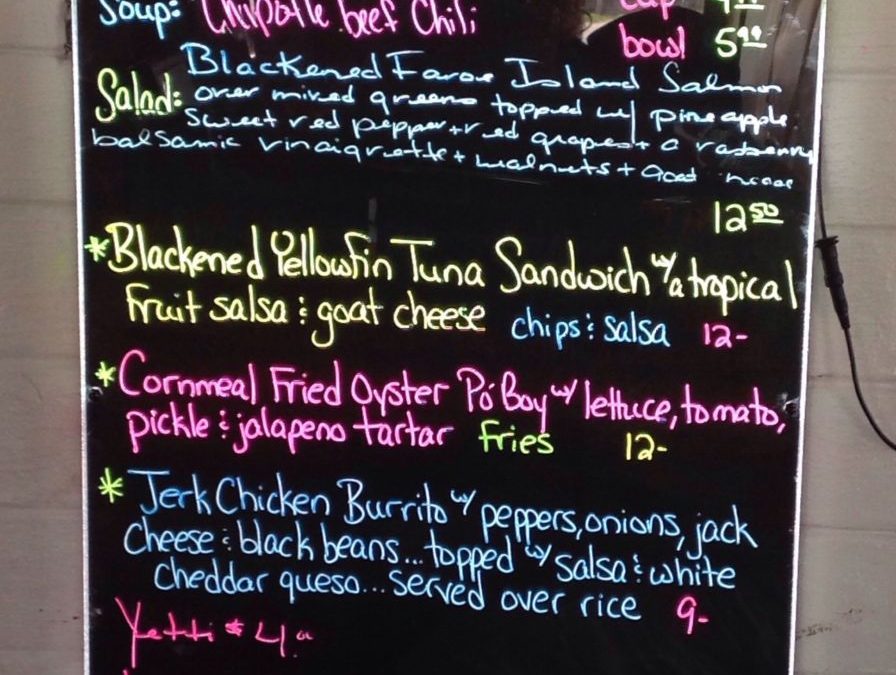 Soup: Chipotle beef Chili
cup
bowl 5
Salad: Blackened Faroe Island Salmon
over mixed greens topped w/ pineapple
sweet red pepper + red grapes + a rasberry
balsamic vinaigrette + walnuts + goat
12 50
*Blackened Yellowfin Tuna Sandwich w/ a tropical
Fruit salsa & goat cheese chips & salsa 12-
*Cornmeal Fried Oyster Po'Boy w/ lettuce, tomato,
pickle & jalapeno tartar fries 12-
* Jerk Chicken Burrito w/ peppers, onions, jack
Cheese & black beans... topped w/ salsa & white
cheddar queso... served over rice 9-